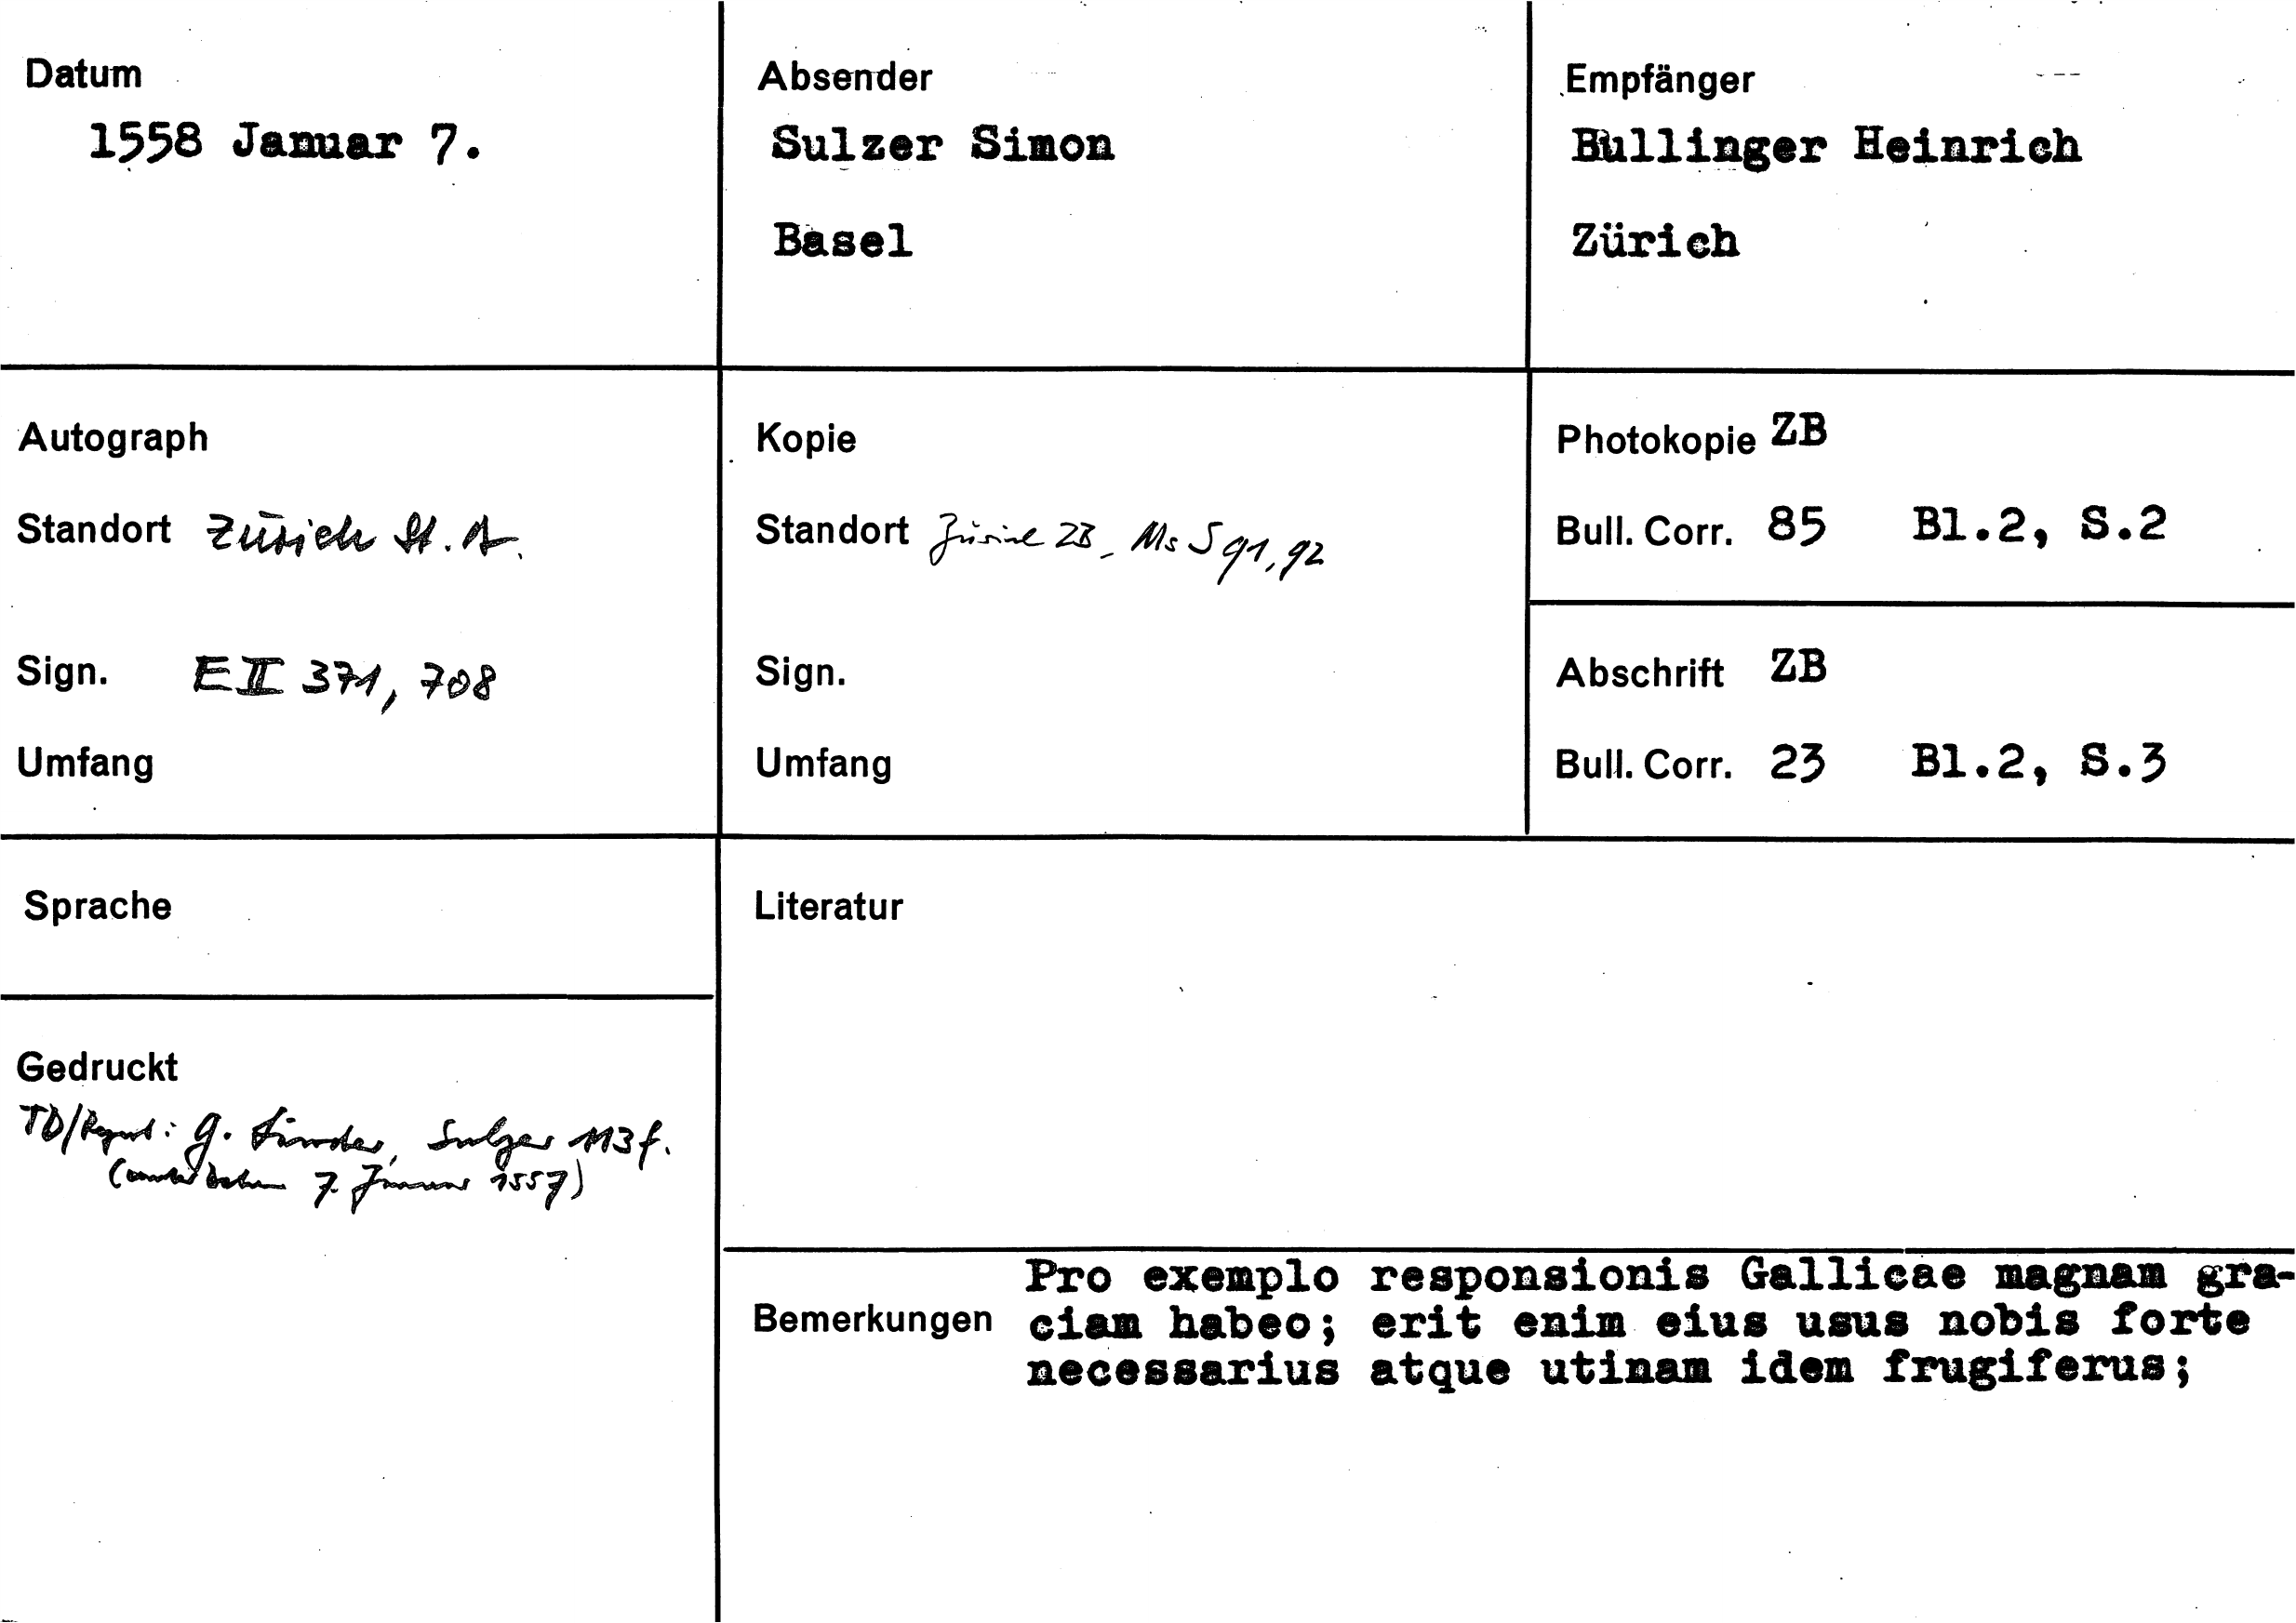 Datum
1558 Januar 7.
Absender
Sulzer Simon
Basel
Empfänger
Bullinger Heinrich
Zürich
Autograph
Standort Zürich St. A.
Sign. E II 371, 708
Umfang
Kopie
Standort Zürich ZB, Ms S 91, 92
Sign.
Umfang
Photokopie ZB
Bull. Corr. 85 Bl.2, S.2
Abschrift ZB
Bull. Corr. 23 Bl.2, S.3
Sprache
Gedruckt
TD/Regest: G. Linder, Sulzer 113 f.
(unter dem 7. Januar 1557)
Literatur
Bemerkungen
Pro exemplo responsionis Gallicae magnam gra-
ciam habeo; erit enim eius usus nobis forte
necessarius atque utinam idem frugiferus;